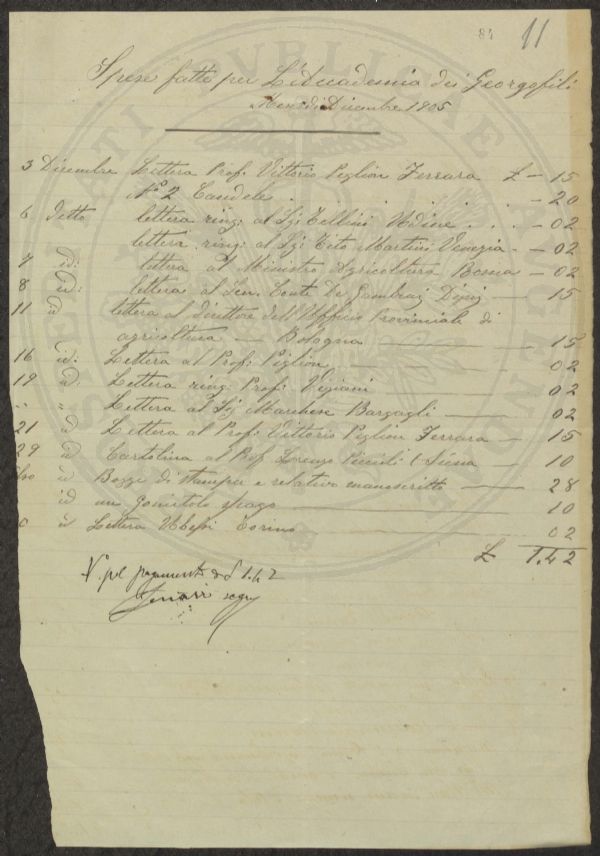 84 11
Spese fatte per L'Accademia dei Georgofili
Mese di Dicembre 1905
3 Dicembre Lettera Prof: Vittorio Peglion Ferrara £ — 15
No 2 Candele . . . . . — 20
6 detto lettera ring: al Sig: Tellini Udine . . . — 02
lettera ring: al Sig: Tito Martini Venezia . — 02
7 id: lettera al Ministro Agricoltura Roma — 02
8 id: lettera al Sen. Conte De Gambraij Digny — 15
11 id lettera al direttore dell'Ufficio Provinciale di
agricoltura — Bologna — 15
16 id: Lettera al Prof: Peglion — 02
19 id: Lettera ring: Prof: Vigiani 02
" " Lettera al Sig Marchese Bargagli — 02
21 id Lettera al Prof: Vittorio Peglion Ferrara — 15
29 id Cartolina al Prof Lorenzo Piccioli Siena — 10
id Bozze di stampa e relativo manoscritto — 28
id un gomitolo spago 10
id Lettera Torino 02
£ 1.42
Vo pel pagamento di £ 1.42
segr